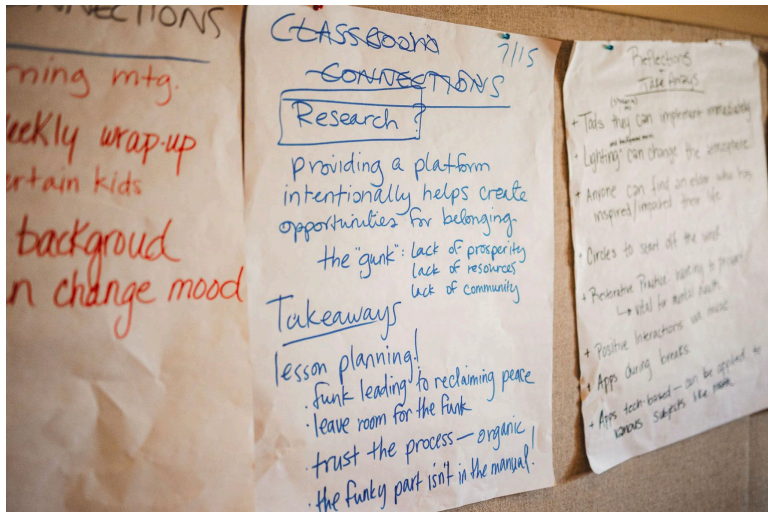 NNECTIONS
rning mtg.
eekly wrap-up
ertain kids
backgroud
n change mood
CLASSROOM
7/15
CONNECTIONS
Research?
providing a platform
intentionally helps create
opportunities for belonging.
the "gunk": lack of prosperity
lack of resources
lack of community
Takeaways
lesson planning!
· funk leading to reclaiming peace
· leave room for the funk
· trust the process — organic!
· the funky part isn't in the manual!
Reflections
Take Aways
+ Tools they can implement immediately
+ Lighting can change the atmosphere
+ Anyone can find an elder who has
inspired/impacted their life
+ Circles to start off the week
+ Restorative Practice
→ vital for mental health
+ Positive Interactions via music
+ Apps during breaks
+ Apps tech-based — can be applied to
various subjects like math